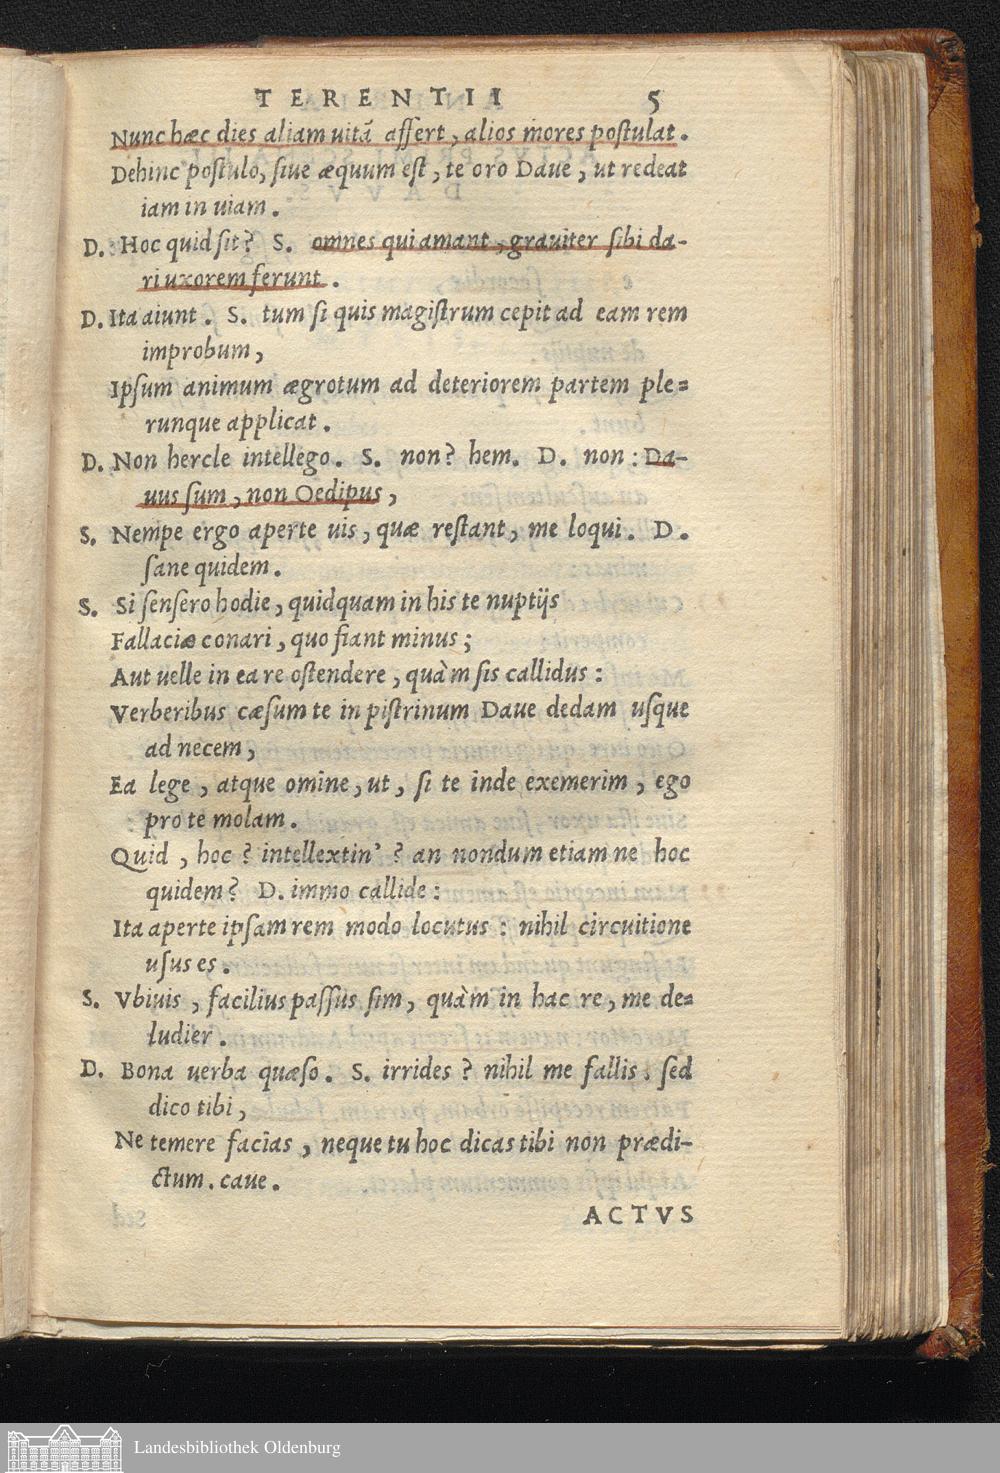 TERENTII 5
Nunc hæc dies aliam uitā affert, alios mores poſtulat.
Dehinc poſtulo, ſiue æquum eſt, te oro Daue, ut redeat
iam in uiam.
D. Hoc quid ſit? S. omnes qui amant, grauiter ſibi da-
ri uxorem ferunt.
D. Ita aiunt. S. tum ſi quis magiſtrum cepit ad eam rem
improbum,
Ipſum animum ægrotum ad deteriorem partem ple=
runque applicat.
D. Non hercle intellego. S. non? hem. D. non: Da-
uus ſum, non Oedipus,
S. Nempe ergo aperte uis, quæ reſtant, me loqui. D.
ſane quidem.
S. Si ſenſero hodie, quidquam in his te nuptijs
Fallaciæ conari, quo fiant minus;
Aut uelle in ea re oſtendere, quàm ſis callidus:
Verberibus cæſum te in piſtrinum Daue dedam uſque
ad necem,
Ea lege, atque omine, ut, ſi te inde exemerim, ego
pro te molam.
Quid, hoc? intellextin'? an nondum etiam ne hoc
quidem? D. immo callide:
Ita aperte ipſam rem modo locutus: nihil circuitione
uſus es.
S. Vbiuis, facilius paſſus ſim, quàm in hac re, me de=
ludier.
D. Bona uerba quæſo. S. irrides? nihil me fallis. ſed
dico tibi,
Ne temere facias, neque tu hoc dicas tibi non prædi-
ctum. caue.
ACTVS
Landesbibliothek Oldenburg